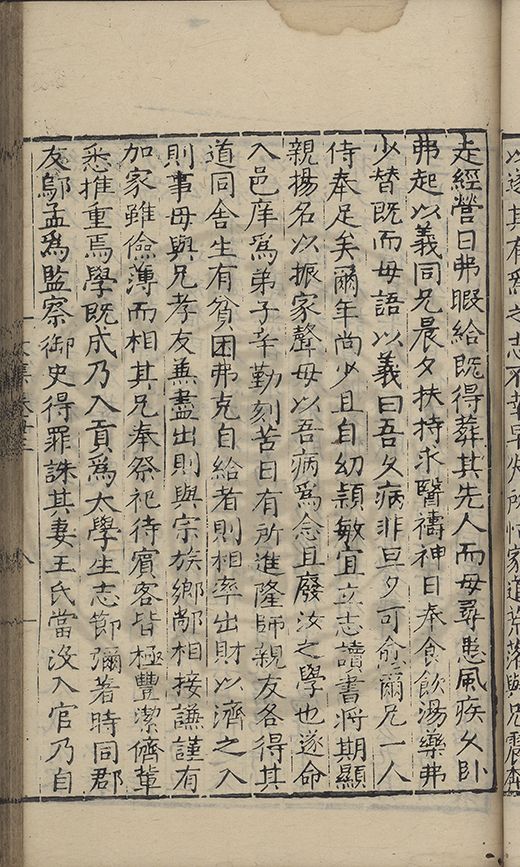 走經營日弗暇給既得葬其先人而母尋患風疾久卧
弗起以義同兄晨夕扶持求醫禱神日奉食飲湯藥弗
少替既而母語以義曰吾久病非旦夕可愈爾兄一人
侍奉足矣爾年尚少且自幼穎敏宜立志讀書將期顯
親揚名以振家聲毋以吾病爲念且廢汝之學也遂命
入邑庠爲弟子辛勤刻苦日有所進隆師親友各得其
道同舍生有貧困弗克自給者則相率出財以濟之入
則事母與兄孝友兼盡出則與宗族鄉鄰相接謙謹有
加家雖儉薄而相其兄奉祭祀待賓客皆極豐潔儕輩
悉推重焉學既成乃入貢爲太學生志節彌著時同郡
友鄔孟爲監察御史得罪誅其妻王氏當沒入官乃自